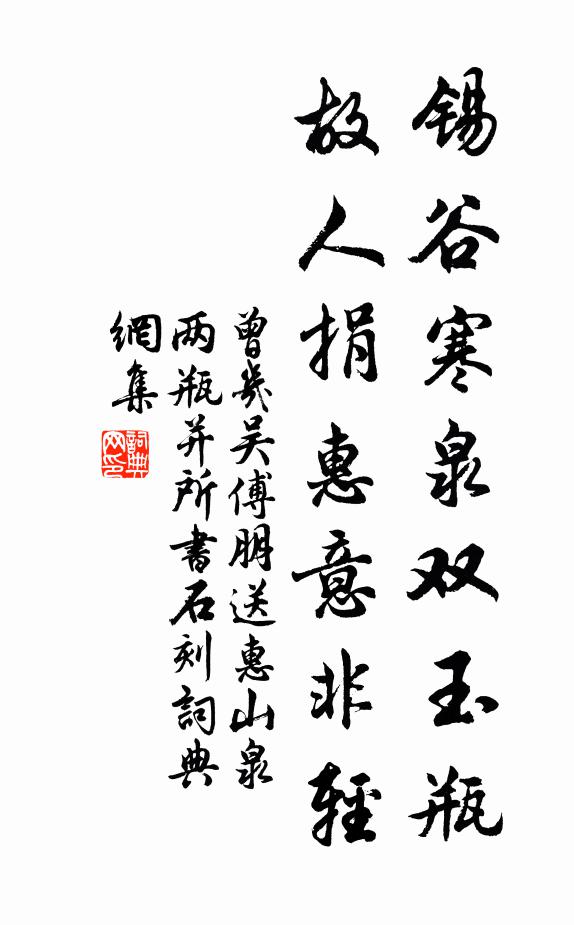 锡谷寒泉双玉瓶
故人捐惠意非轻
曾幾吴傅朋送惠山泉
两瓶并所書石刻詞典
網集
詞典网印